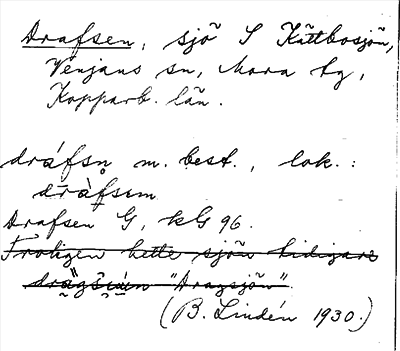 Drafsen, sjö S Kättbosjön,
Venjans sn, Mora tg,
Kopparb. län.
dráfsn̥ m. best., lok. :
dràfsem
Drafsen G, kG 96.
Troligen hette sjön tidigare
"Dragsjön".
(B. Lindén 1930.)